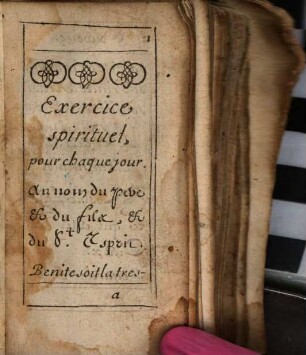 1
Exercice
spirituel,
pour chaque jour.
Au nom du pere
& du filx, &
du St. Esprit.
Benite soit la tres-
a